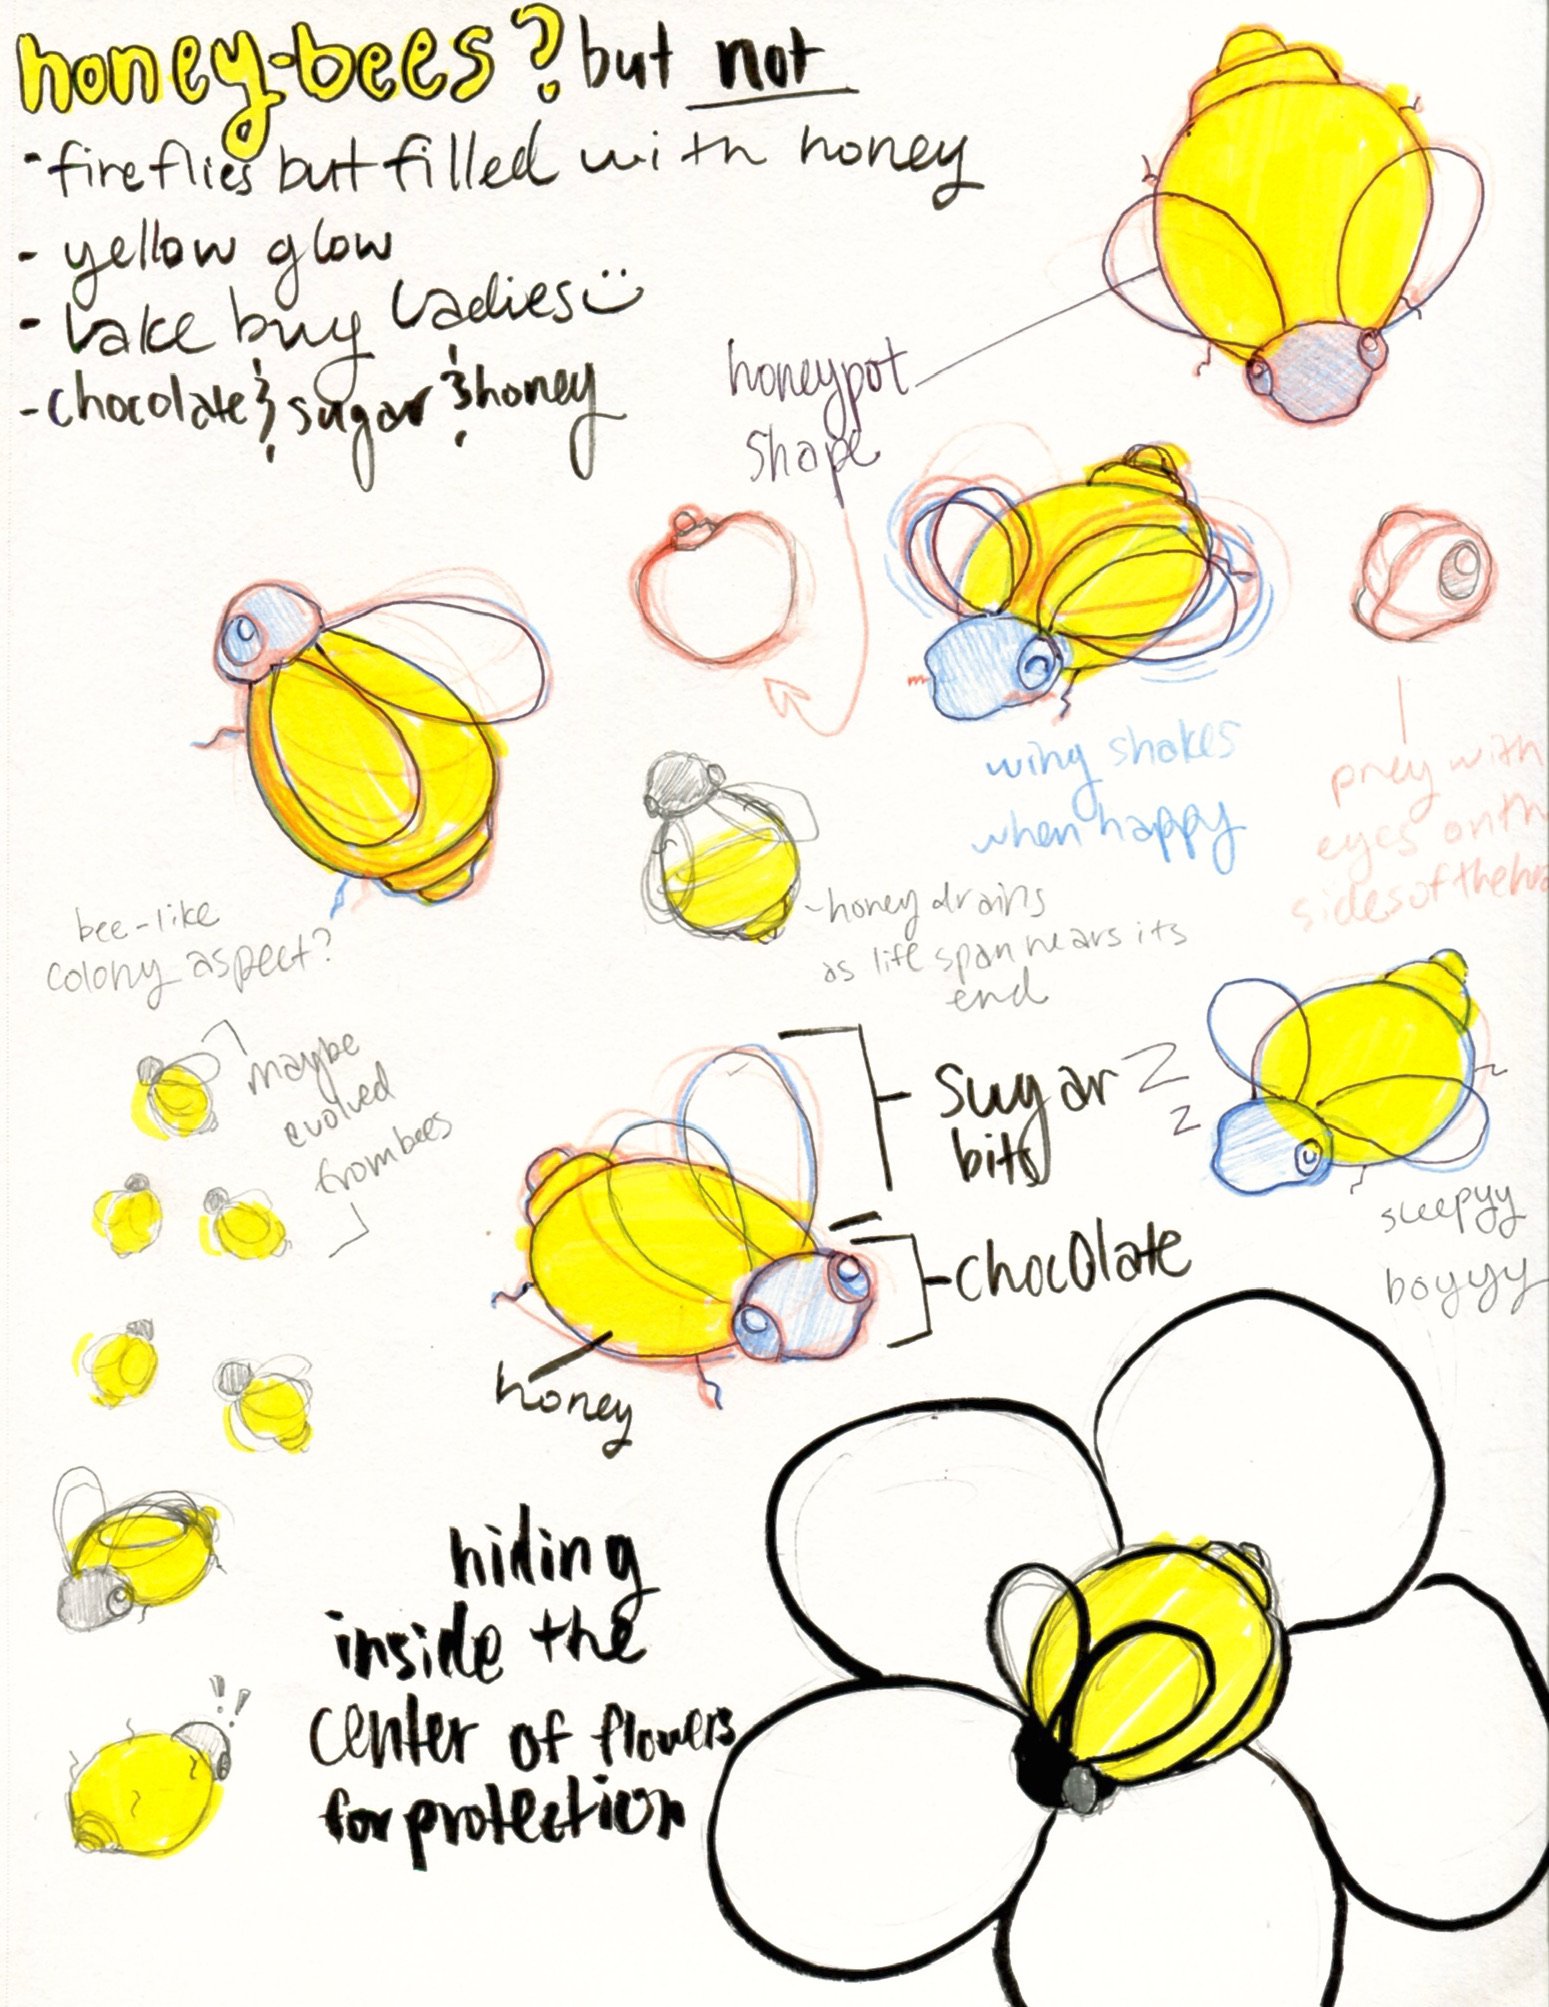 honey-bees? but not
- fireflies but filled with honey
- yellow glow
- Lake buy Ladies :)
- chocolate & sugar & honey
honeypot
shape
wing shakes
when happy
prey with
eyes on th
sides of the hea
- honey drains
as life span nears its
end
bee-like
colony aspect?
maybe
evolved
from bees
sugar
bits
Z
z
sleepyy
boyyy
chocolate
honey
!!
hiding
inside the
center of flowers
for protection